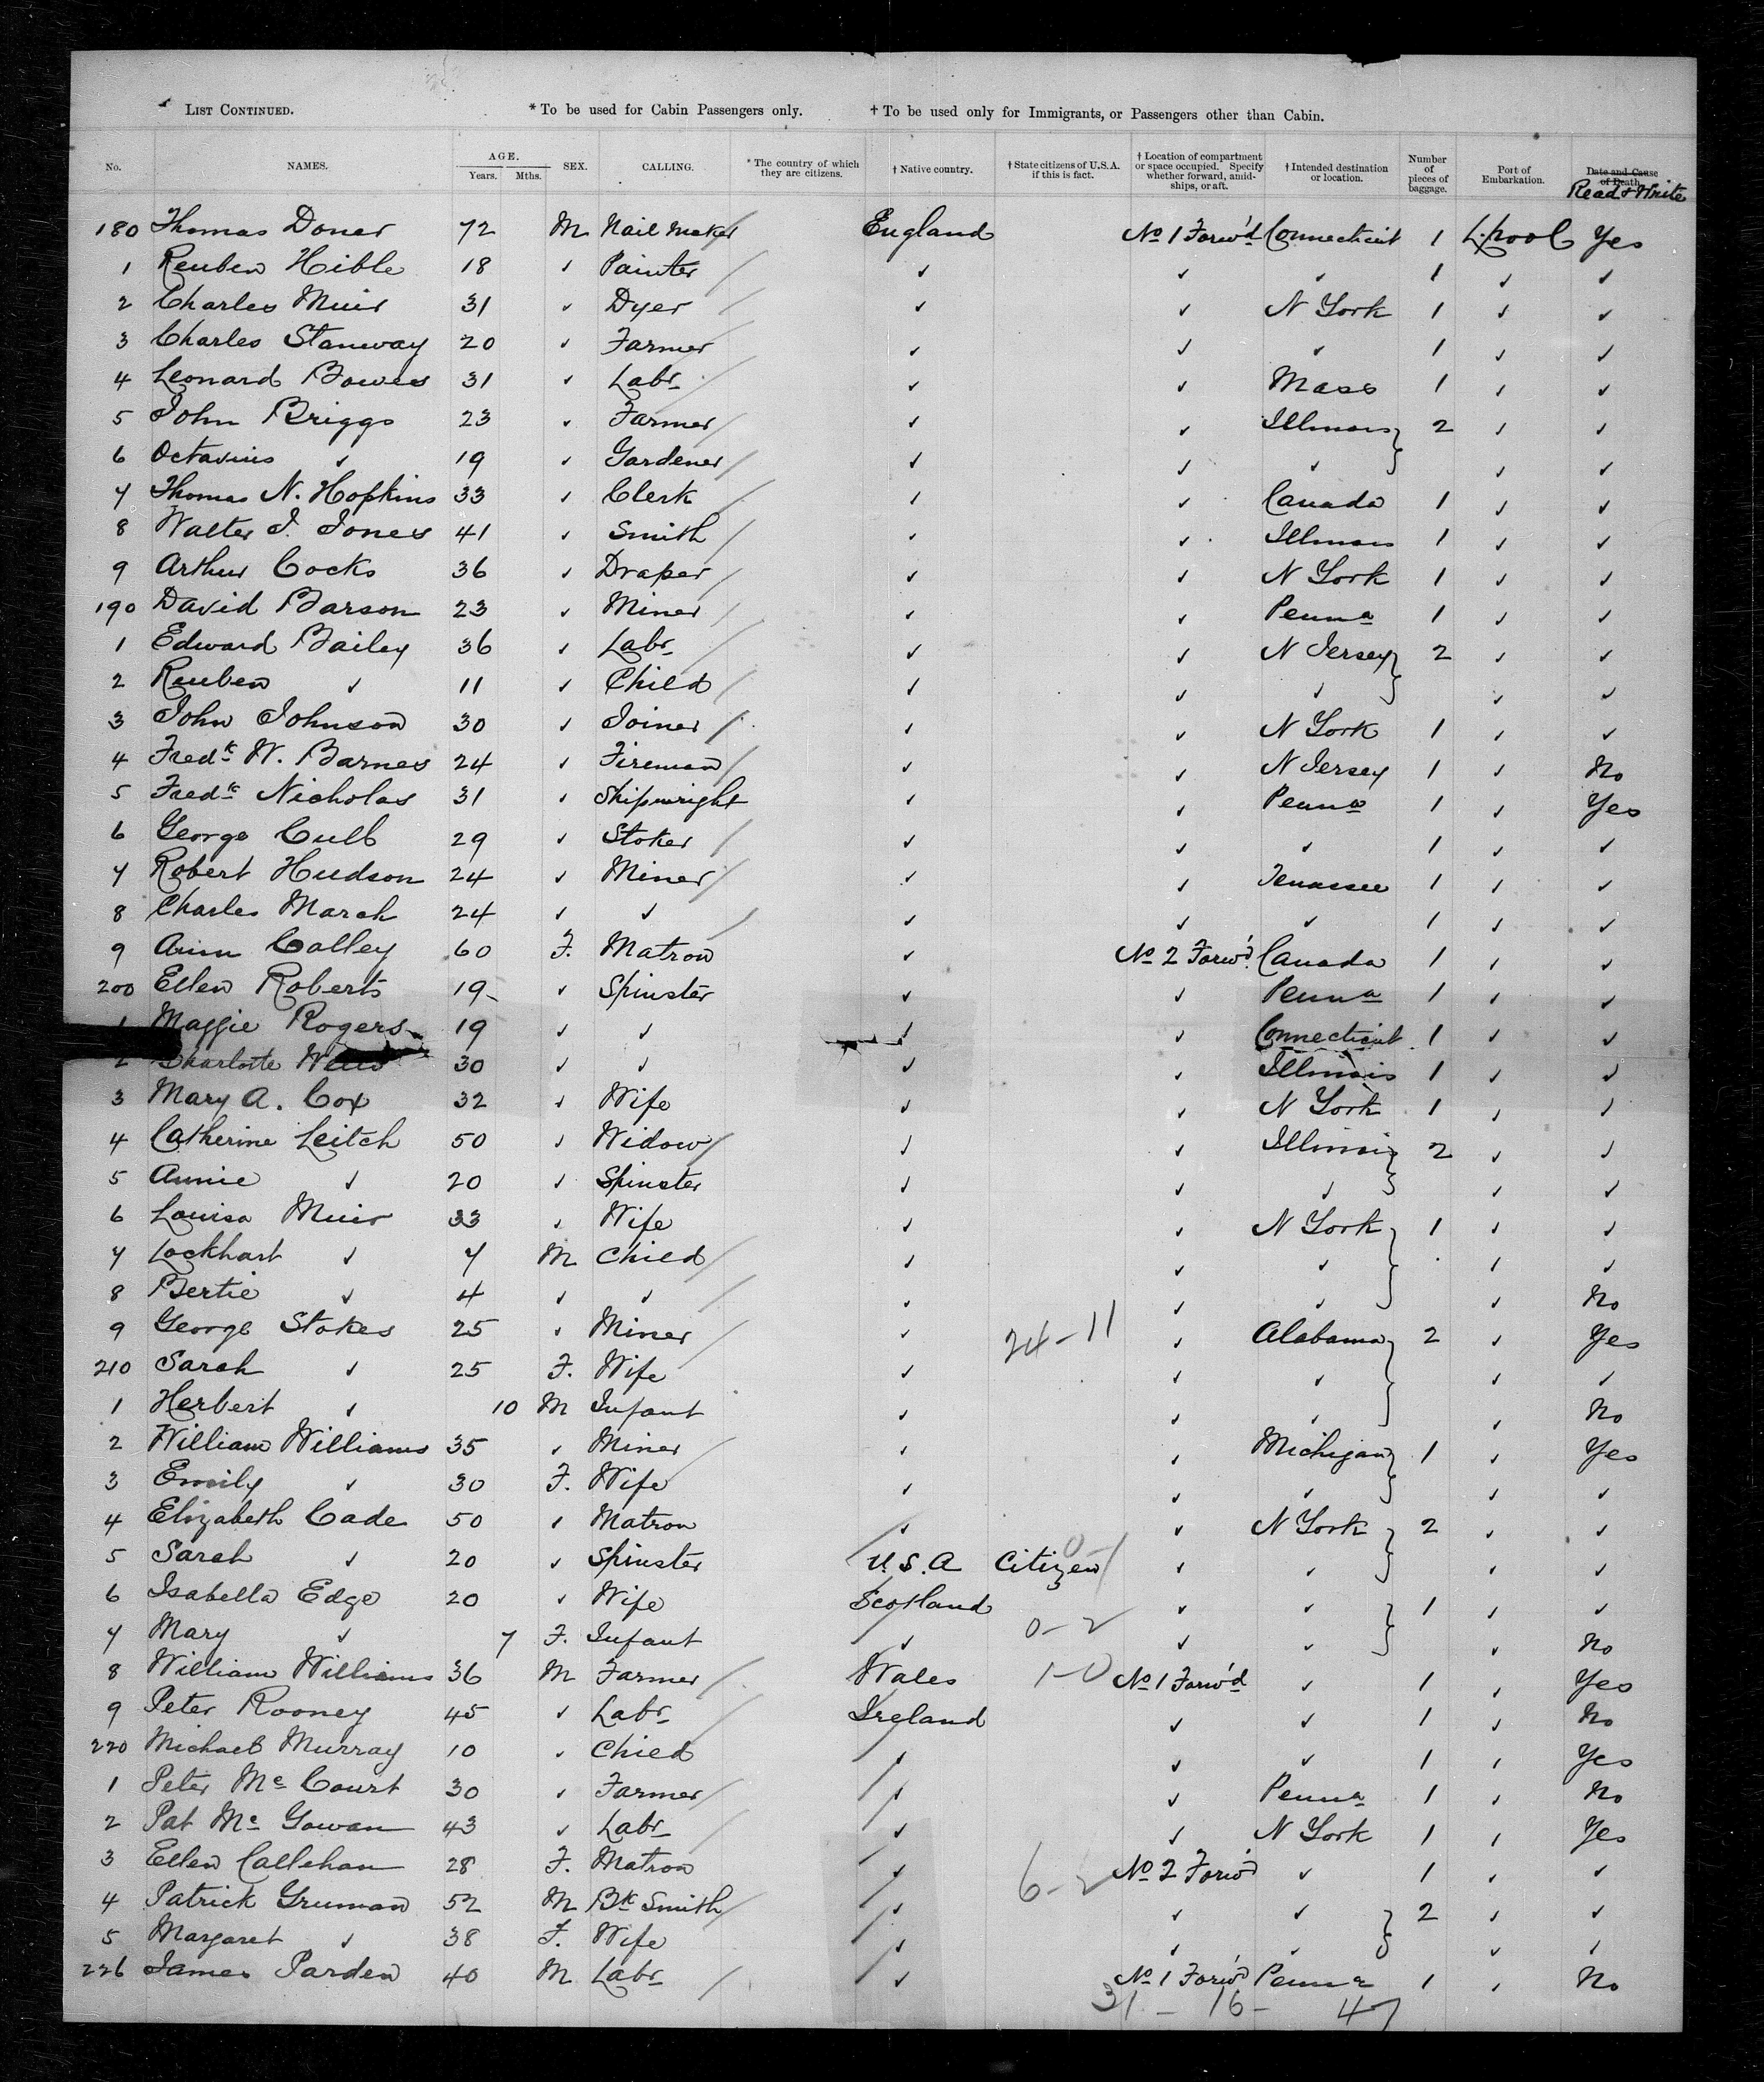 LIST CONTINUED. * To be used for Cabin Passengers only. † To be used only for Immigrants, or Passengers other than Cabin.
No. NAMES. AGE. Years. Mths. SEX. CALLING. * The country of which they are citizens. † Native country. † State citizens of U.S.A. if this is fact. † Location of compartment or space occupied. Specify whether forward, amidships, or aft. † Intended destination or location. Number of pieces of baggage. Port of Embarkation. Date and Cause of Death. Read & Write
180 Thomas Doner 72 M Nail Maker England No 1 Forw'd Connecticut 1 L.pool Yes
1 Reuben Hible 18 ✓ Painter ✓ ✓ ✓ 1 ✓ ✓
2 Charles Muir 31 ✓ Dyer ✓ ✓ N York 1 ✓ ✓
3 Charles Stanway 20 ✓ Farmer ✓ ✓ ✓ 1 ✓ ✓
4 Leonard Bowes 31 ✓ Labr ✓ ✓ Mass 1 ✓ ✓
5 John Briggs 23 ✓ Farmer ✓ ✓ Illinois 2 ✓ ✓
6 Octavius ✓ 19 ✓ Gardener ✓ ✓ ✓ ✓ ✓
7 Thomas N. Hopkins 33 ✓ Clerk ✓ ✓ Canada 1 ✓ ✓
8 Walter J. Jones 41 ✓ Smith ✓ ✓ Illinois 1 ✓ ✓
9 Arthur Cocks 36 ✓ Draper ✓ ✓ N York 1 ✓ ✓
190 David Barson 23 ✓ Miner ✓ ✓ Penna 1 ✓ ✓
1 Edward Bailey 36 ✓ Labr ✓ ✓ N Jersey 2 ✓ ✓
2 Reuben ✓ 11 ✓ Child ✓ ✓ ✓ ✓ ✓
3 John Johnson 30 ✓ Joiner ✓ ✓ N York 1 ✓ ✓
4 Fredk W. Barnes 24 ✓ Fireman ✓ ✓ N Jersey 1 ✓ No
5 Fredk Nicholas 31 ✓ Shipwright ✓ ✓ Penna 1 ✓ Yes
6 George Cull 29 ✓ Stoker ✓ ✓ ✓ 1 ✓ ✓
7 Robert Hudson 24 ✓ Miner ✓ ✓ Tenassee 1 ✓ ✓
8 Charles March 24 ✓ ✓ ✓ ✓ ✓ 1 ✓ ✓
9 Ann Calley 60 F. Matron ✓ No 2 Forw'd Canada 1 ✓ ✓
200 Ellen Roberts 19 ✓ Spinster ✓ ✓ Penna 1 ✓ ✓
1 Maggie Rogers 19 ✓ ✓ ✓ ✓ Connecticut 1 ✓ ✓
2 Charlotte 30 ✓ ✓ ✓ ✓ Illinois 1 ✓ ✓
3 Mary A. Cox 32 ✓ Wife ✓ ✓ N York 1 ✓ ✓
4 Catherine Leitch 50 ✓ Widow ✓ ✓ Illinois 2 ✓ ✓
5 Annie ✓ 20 ✓ Spinster ✓ ✓ ✓ ✓ ✓
6 Louisa Muir 33 ✓ Wife ✓ ✓ N York 1 ✓ ✓
7 Lockhart ✓ 7 M Child ✓ ✓ ✓ ✓ ✓
8 Bertie ✓ 4 ✓ ✓ ✓ ✓ ✓ ✓ No
9 George Stokes 25 ✓ Miner ✓ 24-11 ✓ Alabama 2 ✓ Yes
210 Sarah ✓ 25 F. Wife ✓ ✓ ✓ ✓ ✓
1 Herbert ✓ 10 M Infant ✓ ✓ ✓ ✓ No
2 William Williams 35 ✓ Miner ✓ ✓ Michigan 1 ✓ Yes
3 Emily ✓ 30 F. Wife ✓ ✓ ✓ ✓ ✓
4 Elizabeth Cade 50 ✓ Matron ✓ ✓ N York 2 ✓ ✓
5 Sarah ✓ 20 ✓ Spinster U.S.A Citizen 0-1 ✓ ✓ ✓ ✓
6 Isabella Edge 20 ✓ Wife Scotland ✓ ✓ 1 ✓ ✓
7 Mary ✓ 7 F. Infant ✓ 0-2 ✓ ✓ ✓ No
8 William Williams 36 M Farmer Wales 1-0 No 1 Forw'd ✓ 1 ✓ Yes
9 Peter Rooney 45 ✓ Labr Ireland ✓ ✓ 1 ✓ No
220 Michael Murray 10 ✓ Child ✓ ✓ ✓ 1 ✓ Yes
1 Peter Mc Court 30 ✓ Farmer ✓ ✓ Penna 1 ✓ No
2 Pat Mc Gowan 43 ✓ Labr ✓ ✓ N York 1 ✓ Yes
3 Ellen Callehan 28 F. Matron ✓ 6-2 No 2 Forw'd ✓ 1 ✓ ✓
4 Patrick Gruman 52 M Bk Smith ✓ ✓ ✓ 2 ✓ ✓
5 Margaret ✓ 38 F. Wife ✓ ✓ ✓ ✓ ✓
226 James Parden 40 M Labr ✓ No 1 Forw'd Penna 1 ✓ No
31 - 16 - 47